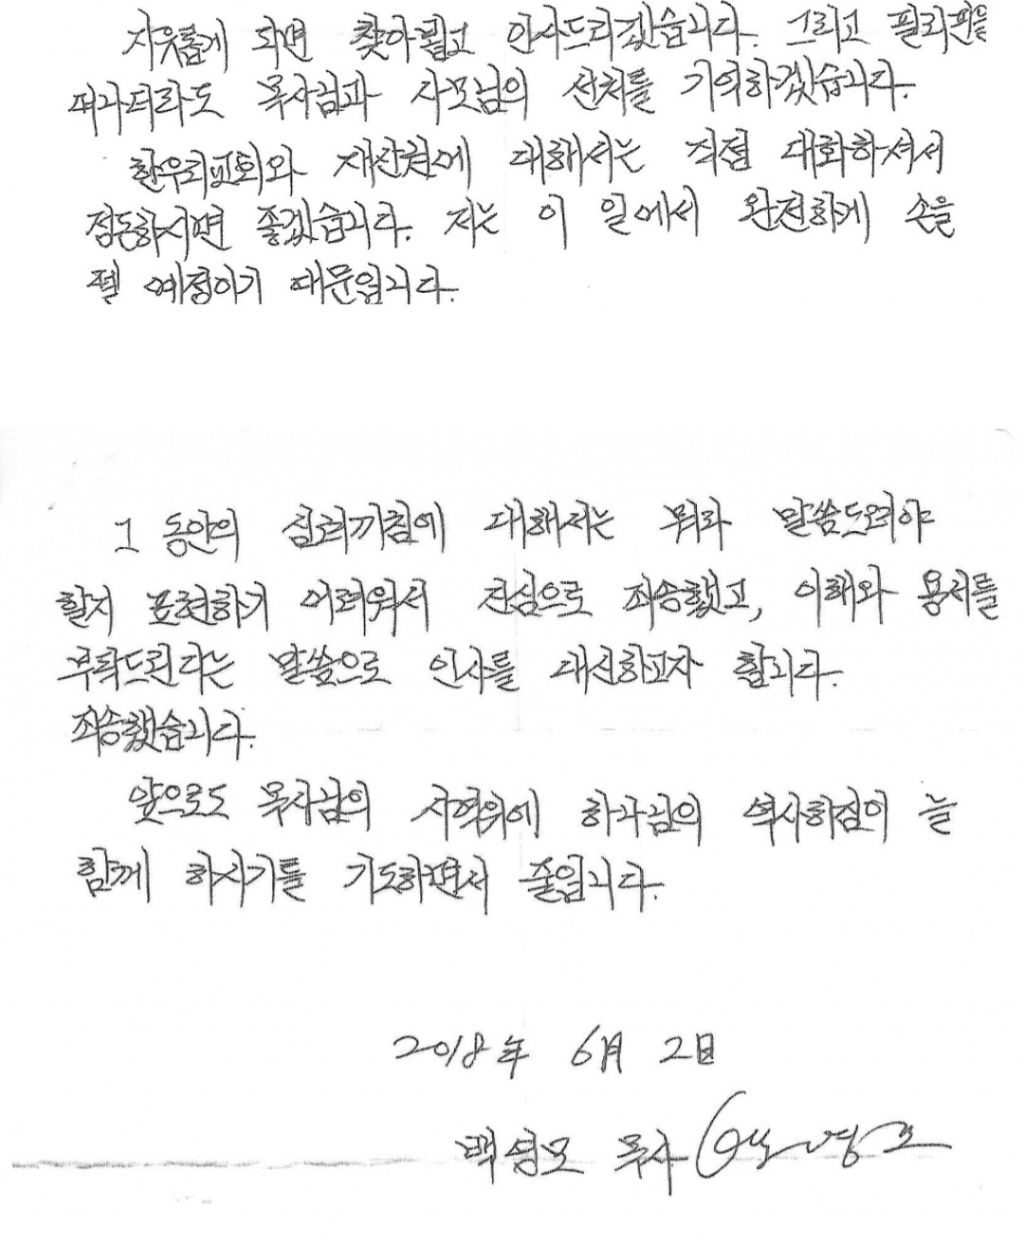 자유롭게 되면 찾아뵙고 인사드리겠습니다. 그리고 필리핀을
떠나더라도 목사님과 사모님의 선처를 기억하겠습니다.
한우리교회와 재산권에 대해서는 직접 대화하셔서
정돈하시면 좋겠습니다. 저는 이 일에서 완전하게 손을
뗄 예정이기 때문입니다.
그 동안의 심려끼침에 대해서는 뭐라 말씀드려야
할지 표현하기 어려워서 진심으로 죄송했고, 이해와 용서를
부탁드린다는 말씀으로 인사를 대신하고자 합니다.
죄송했습니다.
앞으로도 목사님의 사역위에 하나님의 역사하심이 늘
함께 하시기를 기도하면서 줄입니다.
2018年 6月 2日
백영모 목사 백영모